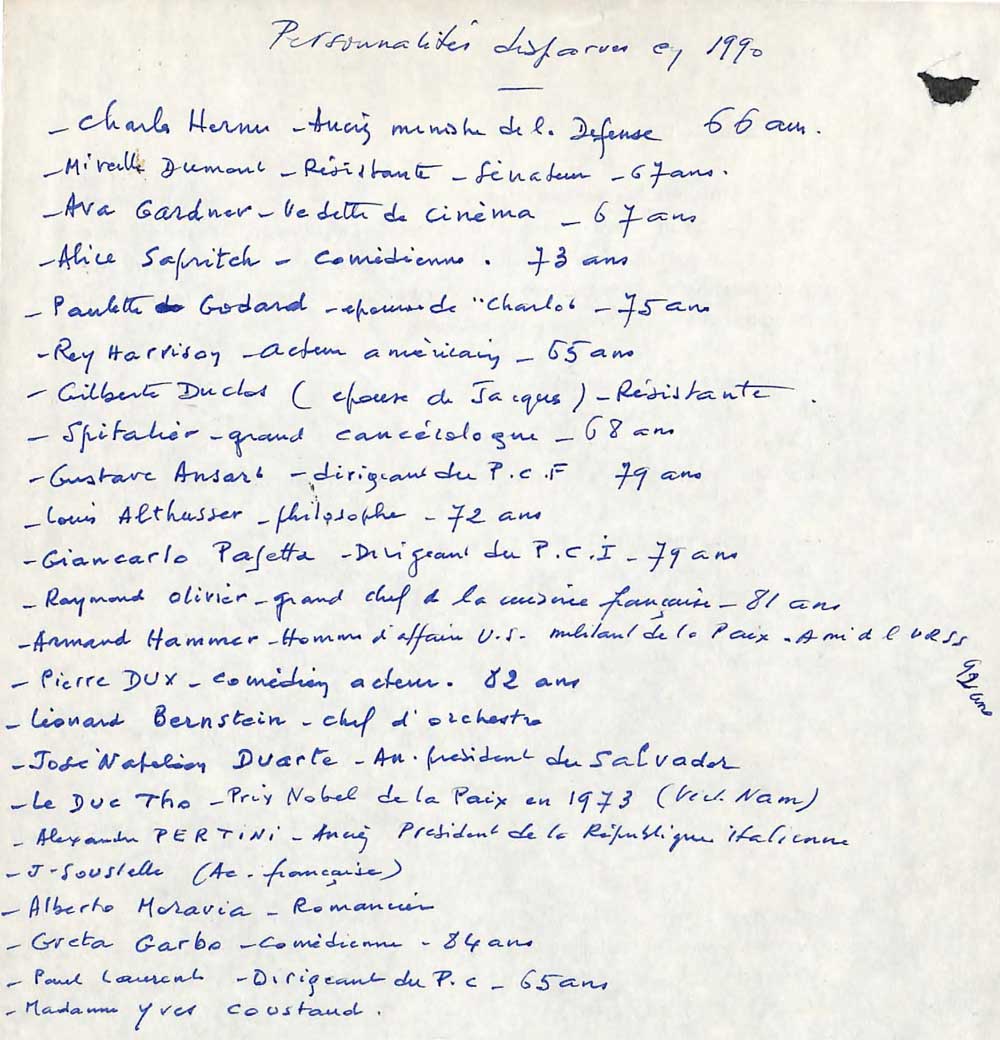 Personnalités disparues en 1990
- Charles Hernu - Ancien ministre de la Défense 66 ans.
- Mireille Dumont - Résistante - Sénateur - 67 ans.
- Ava Gardner - Vedette de cinéma - 67 ans
- Alice Sapritch - comédienne. 73 ans
- Paulette Godard - épouse de "Charlot" - 75 ans
- Rey Harrison - acteur américain - 65 ans
- Gilberte Duclos (épouse de Jacques) - Résistante.
- Spitalier - grand cancérologue - 68 ans
- Gustave Ansart - dirigeant du P.C.F 79 ans
- Louis Althusser - philosophe - 72 ans
- Giancarlo Pajetta - Dirigeant du P.C.I - 79 ans
- Raymond Olivier - grand chef de la cuisine française - 81 ans
- Armand Hammer - Homme d'affaire U.S. militant de la Paix - Ami de l'URSS
92 ans
- Pierre DUX - comédien acteur. 82 ans
- Léonard Bernstein - chef d'orchestre
- José Napoléon Duarte - An. président du Salvador
- Le Duc Tho - Prix Nobel de la Paix en 1973 (Viet. Nam)
- Alexandre PERTINI - Ancien Président de la République italienne
- J. Soustelle (Ac. française)
- Alberto Moravia - Romancier
- Greta Garbo - Comédienne - 84 ans
- Paul Laurent - Dirigeant du P.C - 65 ans
- Madame Yves Coustaud.